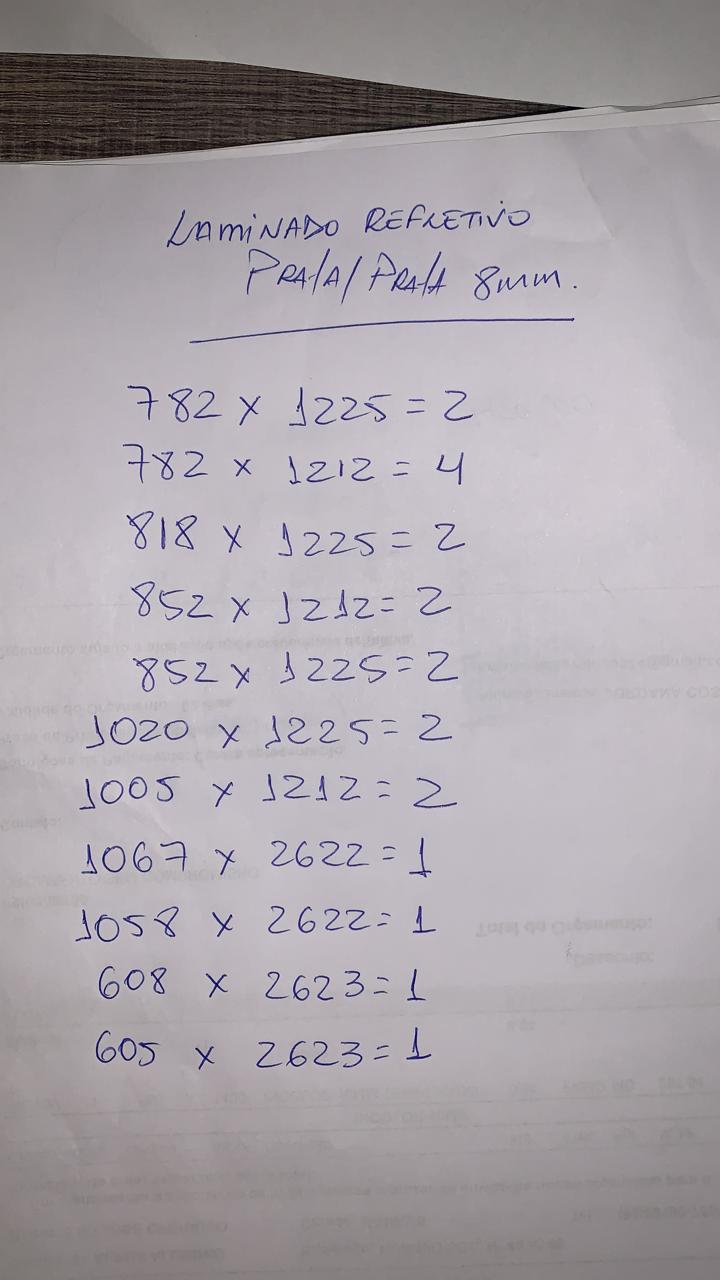 LAMINADO REFLETIVO
PRATA/PRATA 8mm.
782 x 1225 = 2
782 x 1212 = 4
818 x 1225 = 2
852 x 1212 = 2
852 x 1225 = 2
1020 x 1225 = 2
1005 x 1212 = 2
1067 x 2622 = 1
1058 x 2622 = 1
608 x 2623 = 1
605 x 2623 = 1